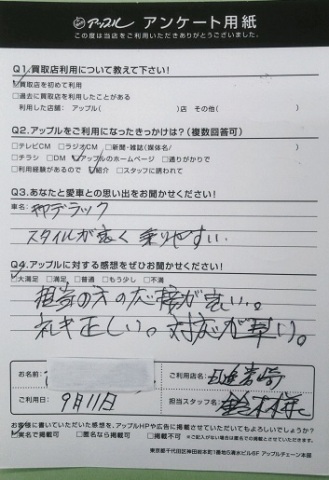 アップル アンケート用紙
この度は当店をご利用いただきありがとうございました。
Q1.買取店利用について教えて下さい!
買取店を初めて利用
□過去に買取店を利用したことがある
利用した店舗:アップル( )店 その他( )
Q2.アップルをご利用になったきっかけは?(複数回答可)
□テレビCM □ラジオCM □新聞・雑誌(媒体名/ )
□チラシ □DM アップルのホームページ □通りがかりで
□利用経験があるので 紹介 □スタッフに誘われて
Q3.あなたと愛車との思い出をお聞かせください!
車名:キャデラック
スタイルが良く 乗りやすい。
Q4.アップルに対する感想をぜひお聞かせください!
大満足 □満足 □普通 □もう少し □不満
担当の方の応接が良い。
礼ギ正しい。対応が早い。
お名前:
ご利用店名:
ご利用日: 9月11日
担当スタッフ名: 鈴木様
お客様に書いていただいた感想を、アップルHPや広告に掲載させていただいてもよろしいでしょうか?
実名で掲載可 □匿名なら掲載可 □掲載不可 ※ご記入がない場合は匿名での掲載とさせていただきます。